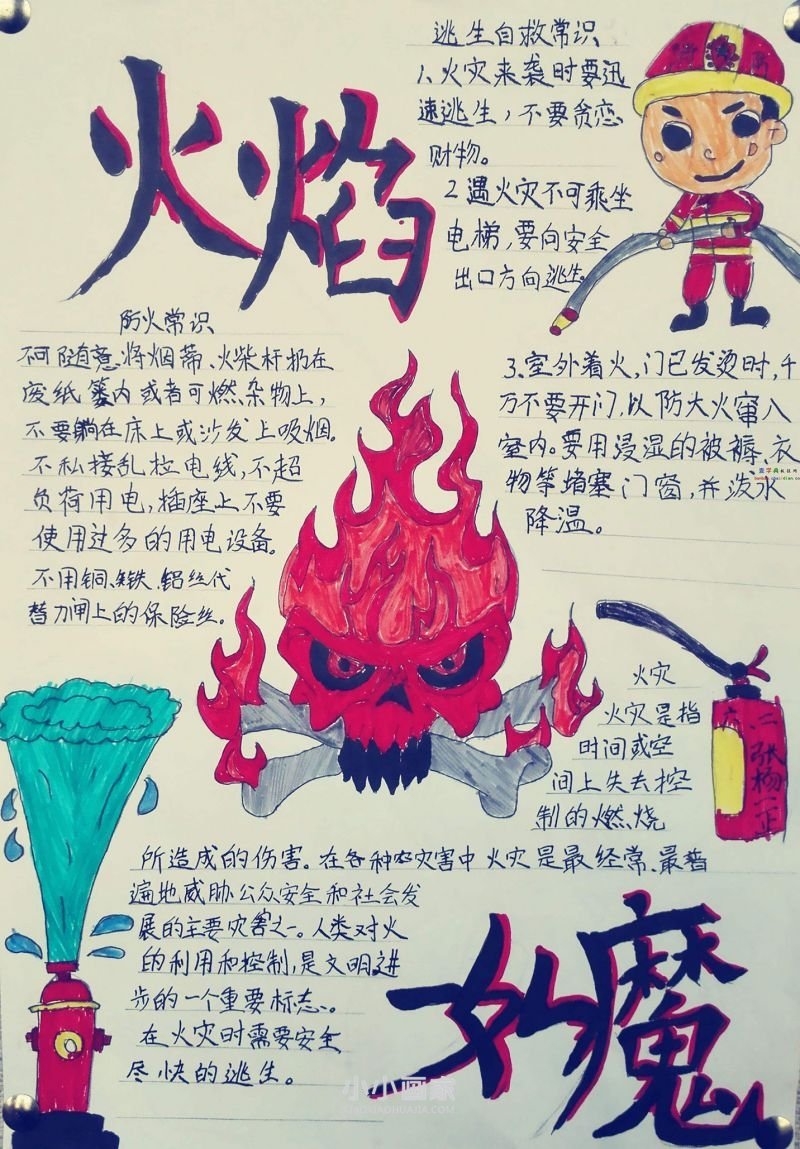 火焰
逃生自救常识
1、火灾来袭时要迅
速逃生，不要贪恋
财物。
2遇火灾不可乘坐
电梯，要向安全
出口方向逃生。
3、室外着火，门已发烫时，千
万不要开门，以防大火窜入
室内。要用浸湿的被褥、衣
物等堵塞门窗，并泼水
降温。
防火常识
不可随意将烟蒂、火柴杆扔在
废纸篓内或者可燃杂物上，
不要躺在床上或沙发上吸烟。
不私接乱拉电线，不超
负荷用电，插座上不要
使用过多的用电设备。
不用铜、铁、铝丝代
替刀闸上的保险丝。
火灾
火灾是指
时间或空
间上失去控
制的燃烧
所造成的伤害。在各种灾害中火灾是最经常、最普
遍地威胁公众安全和社会发
展的主要灾害之一。人类对火
的利用和控制，是文明进
步的一个重要标志。
在火灾时需要安全
尽快的逃生。
六二
张杨一正
魔
小小画家
XIAOXIAOHUAJIA.COM